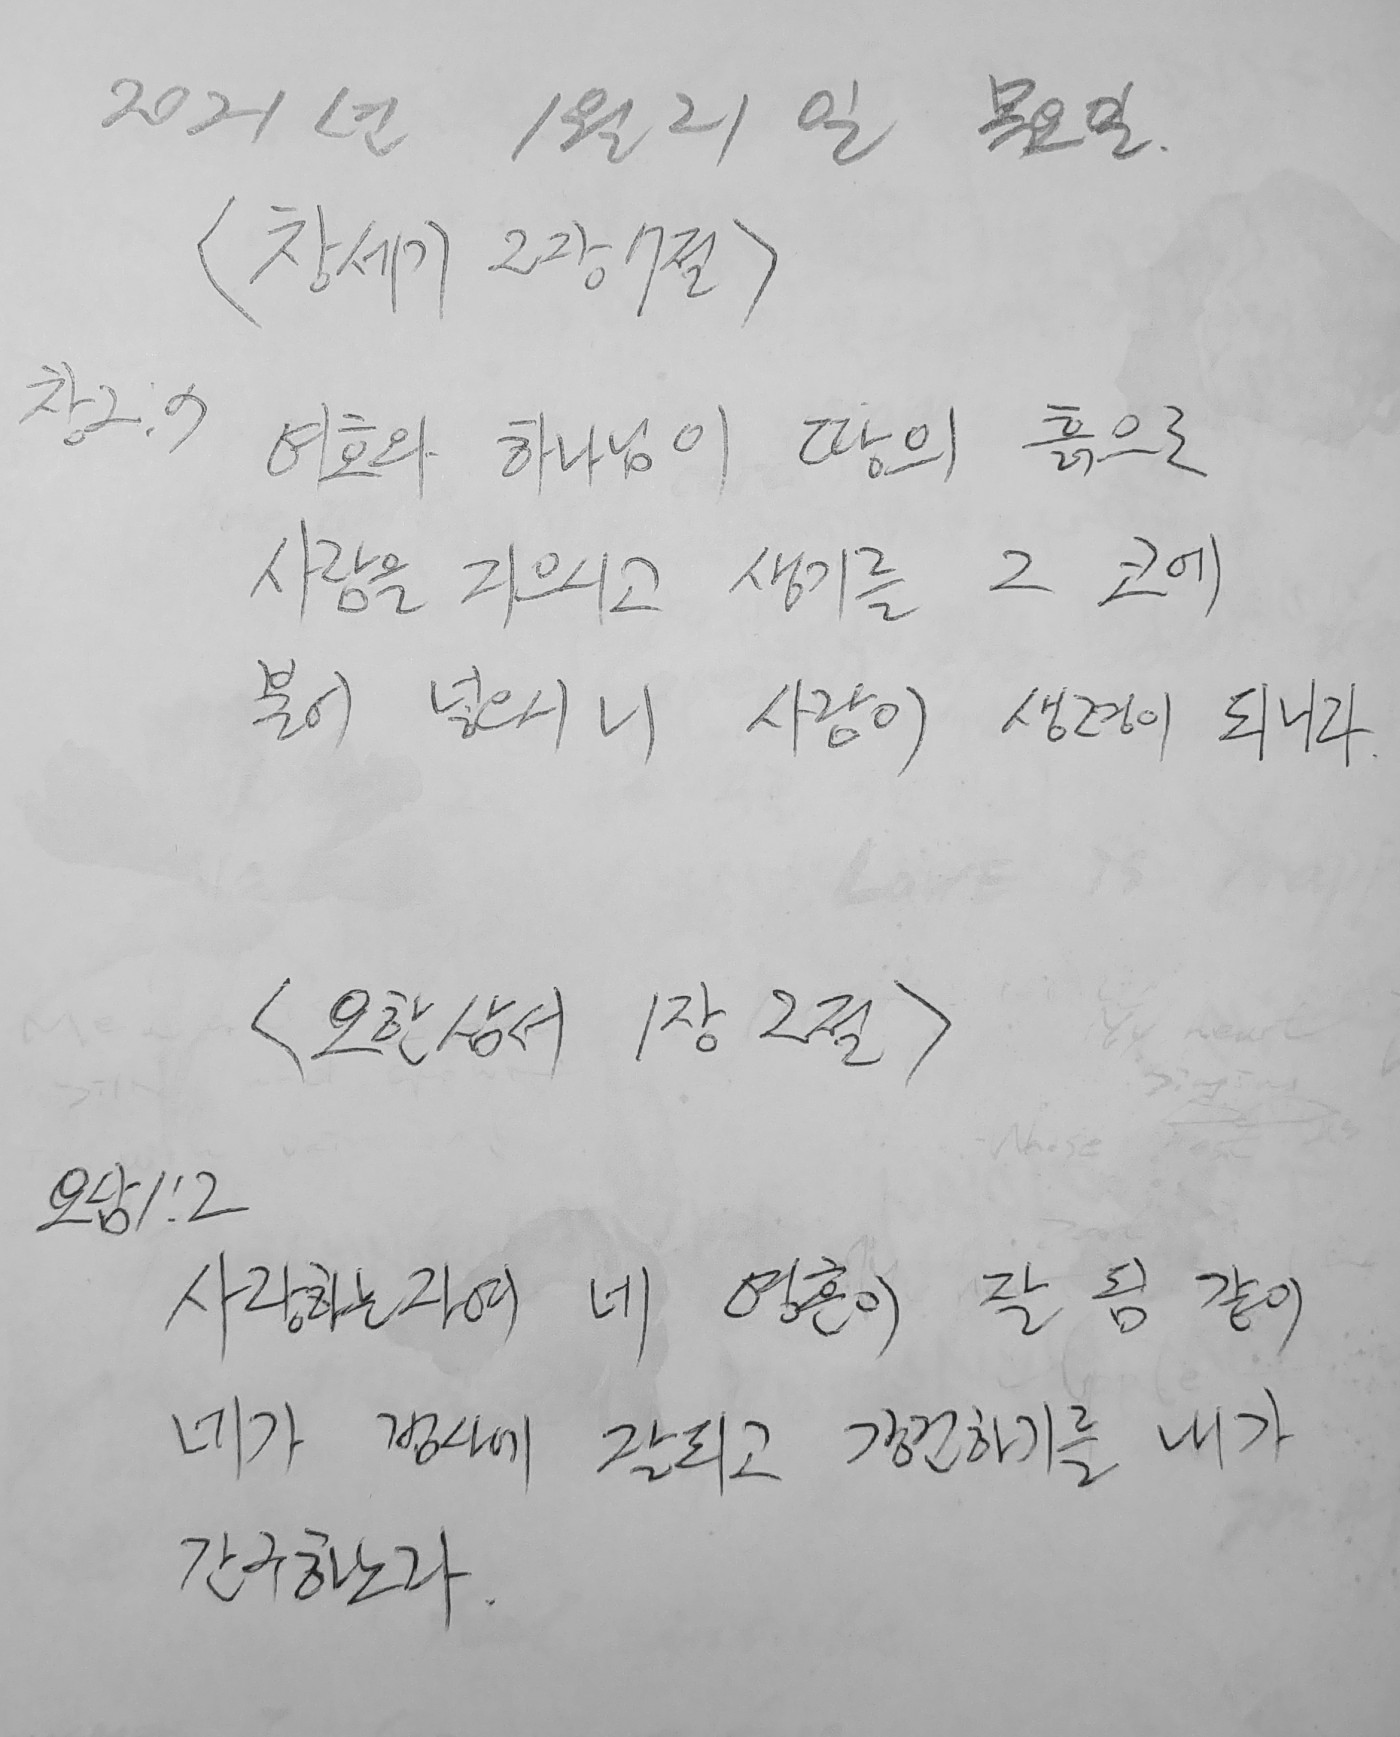 2021년 1월 21일 목요일.
<창세기 2장 7절>
창2:7
여호와 하나님이 땅의 흙으로
사람을 지으시고 생기를 그 코에
불어 넣으시니 사람이 생령이 되니라.
<요한삼서 1장 2절>
요삼1:2
사랑하는자여 네 영혼이 잘 됨 같이
네가 범사에 잘되고 강건하기를 내가
간구하노라.